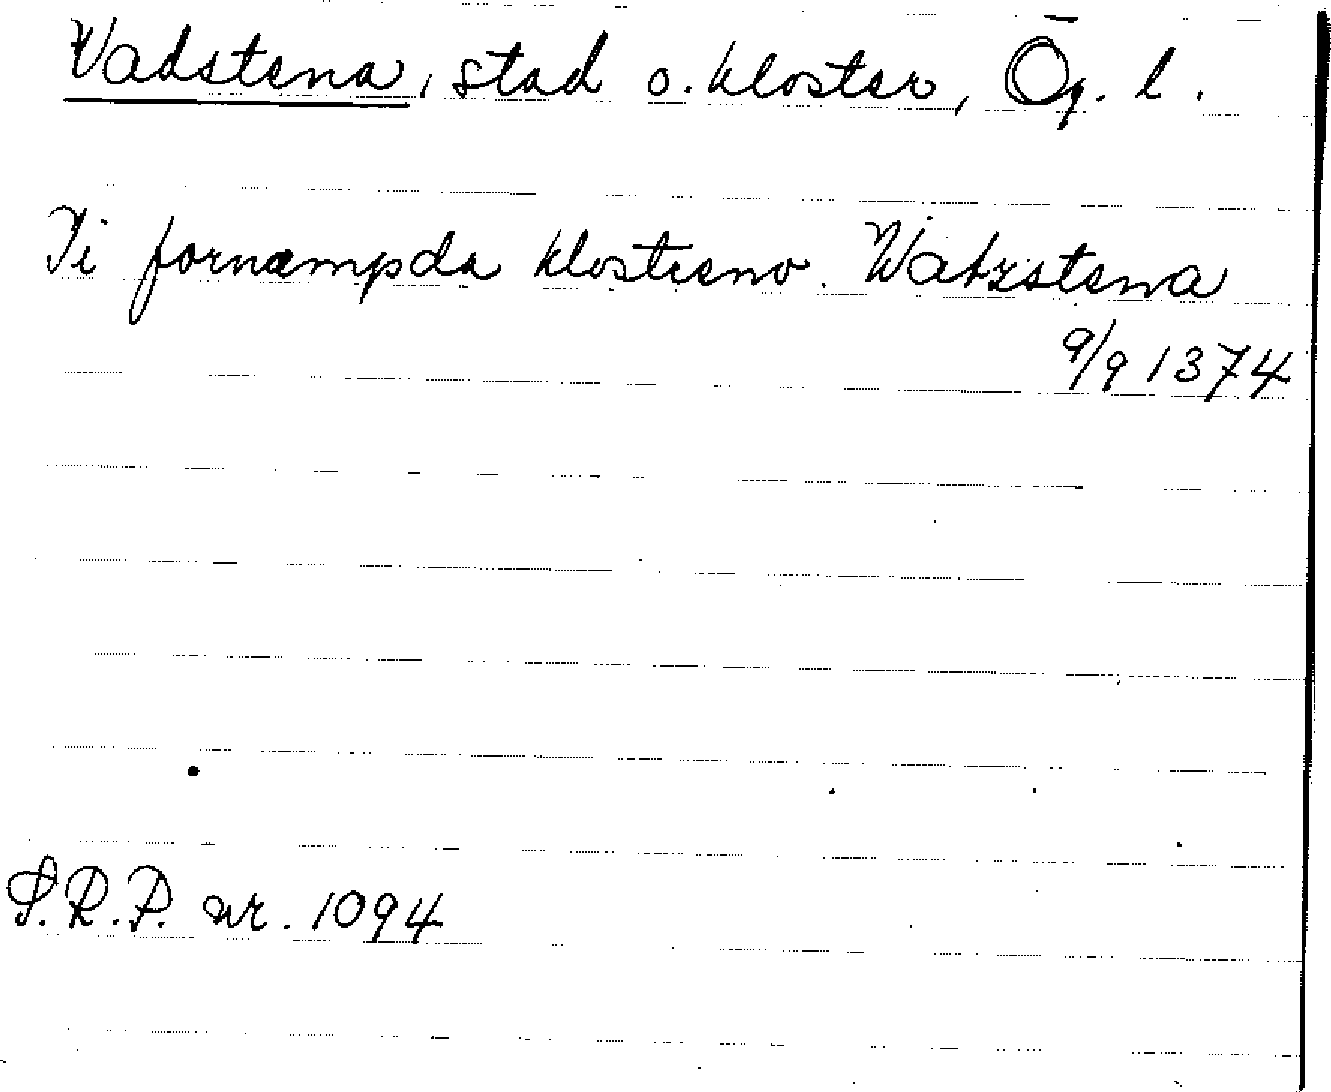 Vadstena, stad o. kloster, Ög. l.
Ji fornæmpda klosteno Watzstena
9/9 1374
S.R.P. nr. 1094